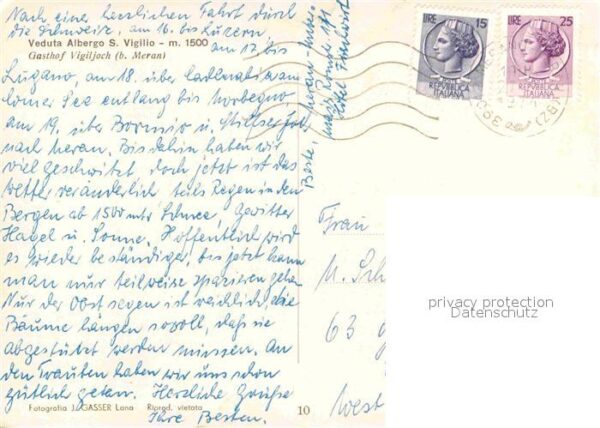 Nach einer herzlichen Fahrt durch
die Schweiz, am 16. bis Luzern
Veduta Albergo S. Vigilio - m. 1500
am 17. bis
Gasthof Vigiljoch (b. Meran)
Lugano, am 18. über
Comer See entlang bis Morbegno,
am 19. über Bormio u. Stilfser Joch
nach Meran. Bis dahin haben wir
viel geschwitzt, doch jetzt ist das
Wetter veränderlich teils Regen in den
Bergen ab 1500 mtr Schnee, Gewitter
Hagel u. Sonne. Hoffentlich wird
es wieder beständiger, bis jetzt kann
man nur teilweise spazieren gehen
Nur der Obstsegen ist reichlich die
Bäume hängen so voll, dass sie
abgestützt werden müssen. An
den Trauben haben wir uns schon
gütlich getan. Herzliche Grüße
Fotografia J. GASSER Lana Riprod. vietata
Ihre Besten.
10
LIRE 15
REPVBBLICA
ITALIANA
LIRE 25
REPVBBLICA
ITALIANA
Frau
M. Sch
63
West
privacy protection
Datenschutz